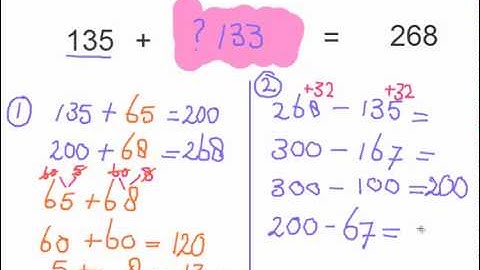 135 + ? 133 = 268
1
135 + 65 = 200
200 + 68 = 268
60 5 60 8
65 + 68
60 + 60 = 120
5 + 8 = 13
2
+32 +32
268 - 135 =
300 - 167 =
300 - 100 = 200
200 - 67 =